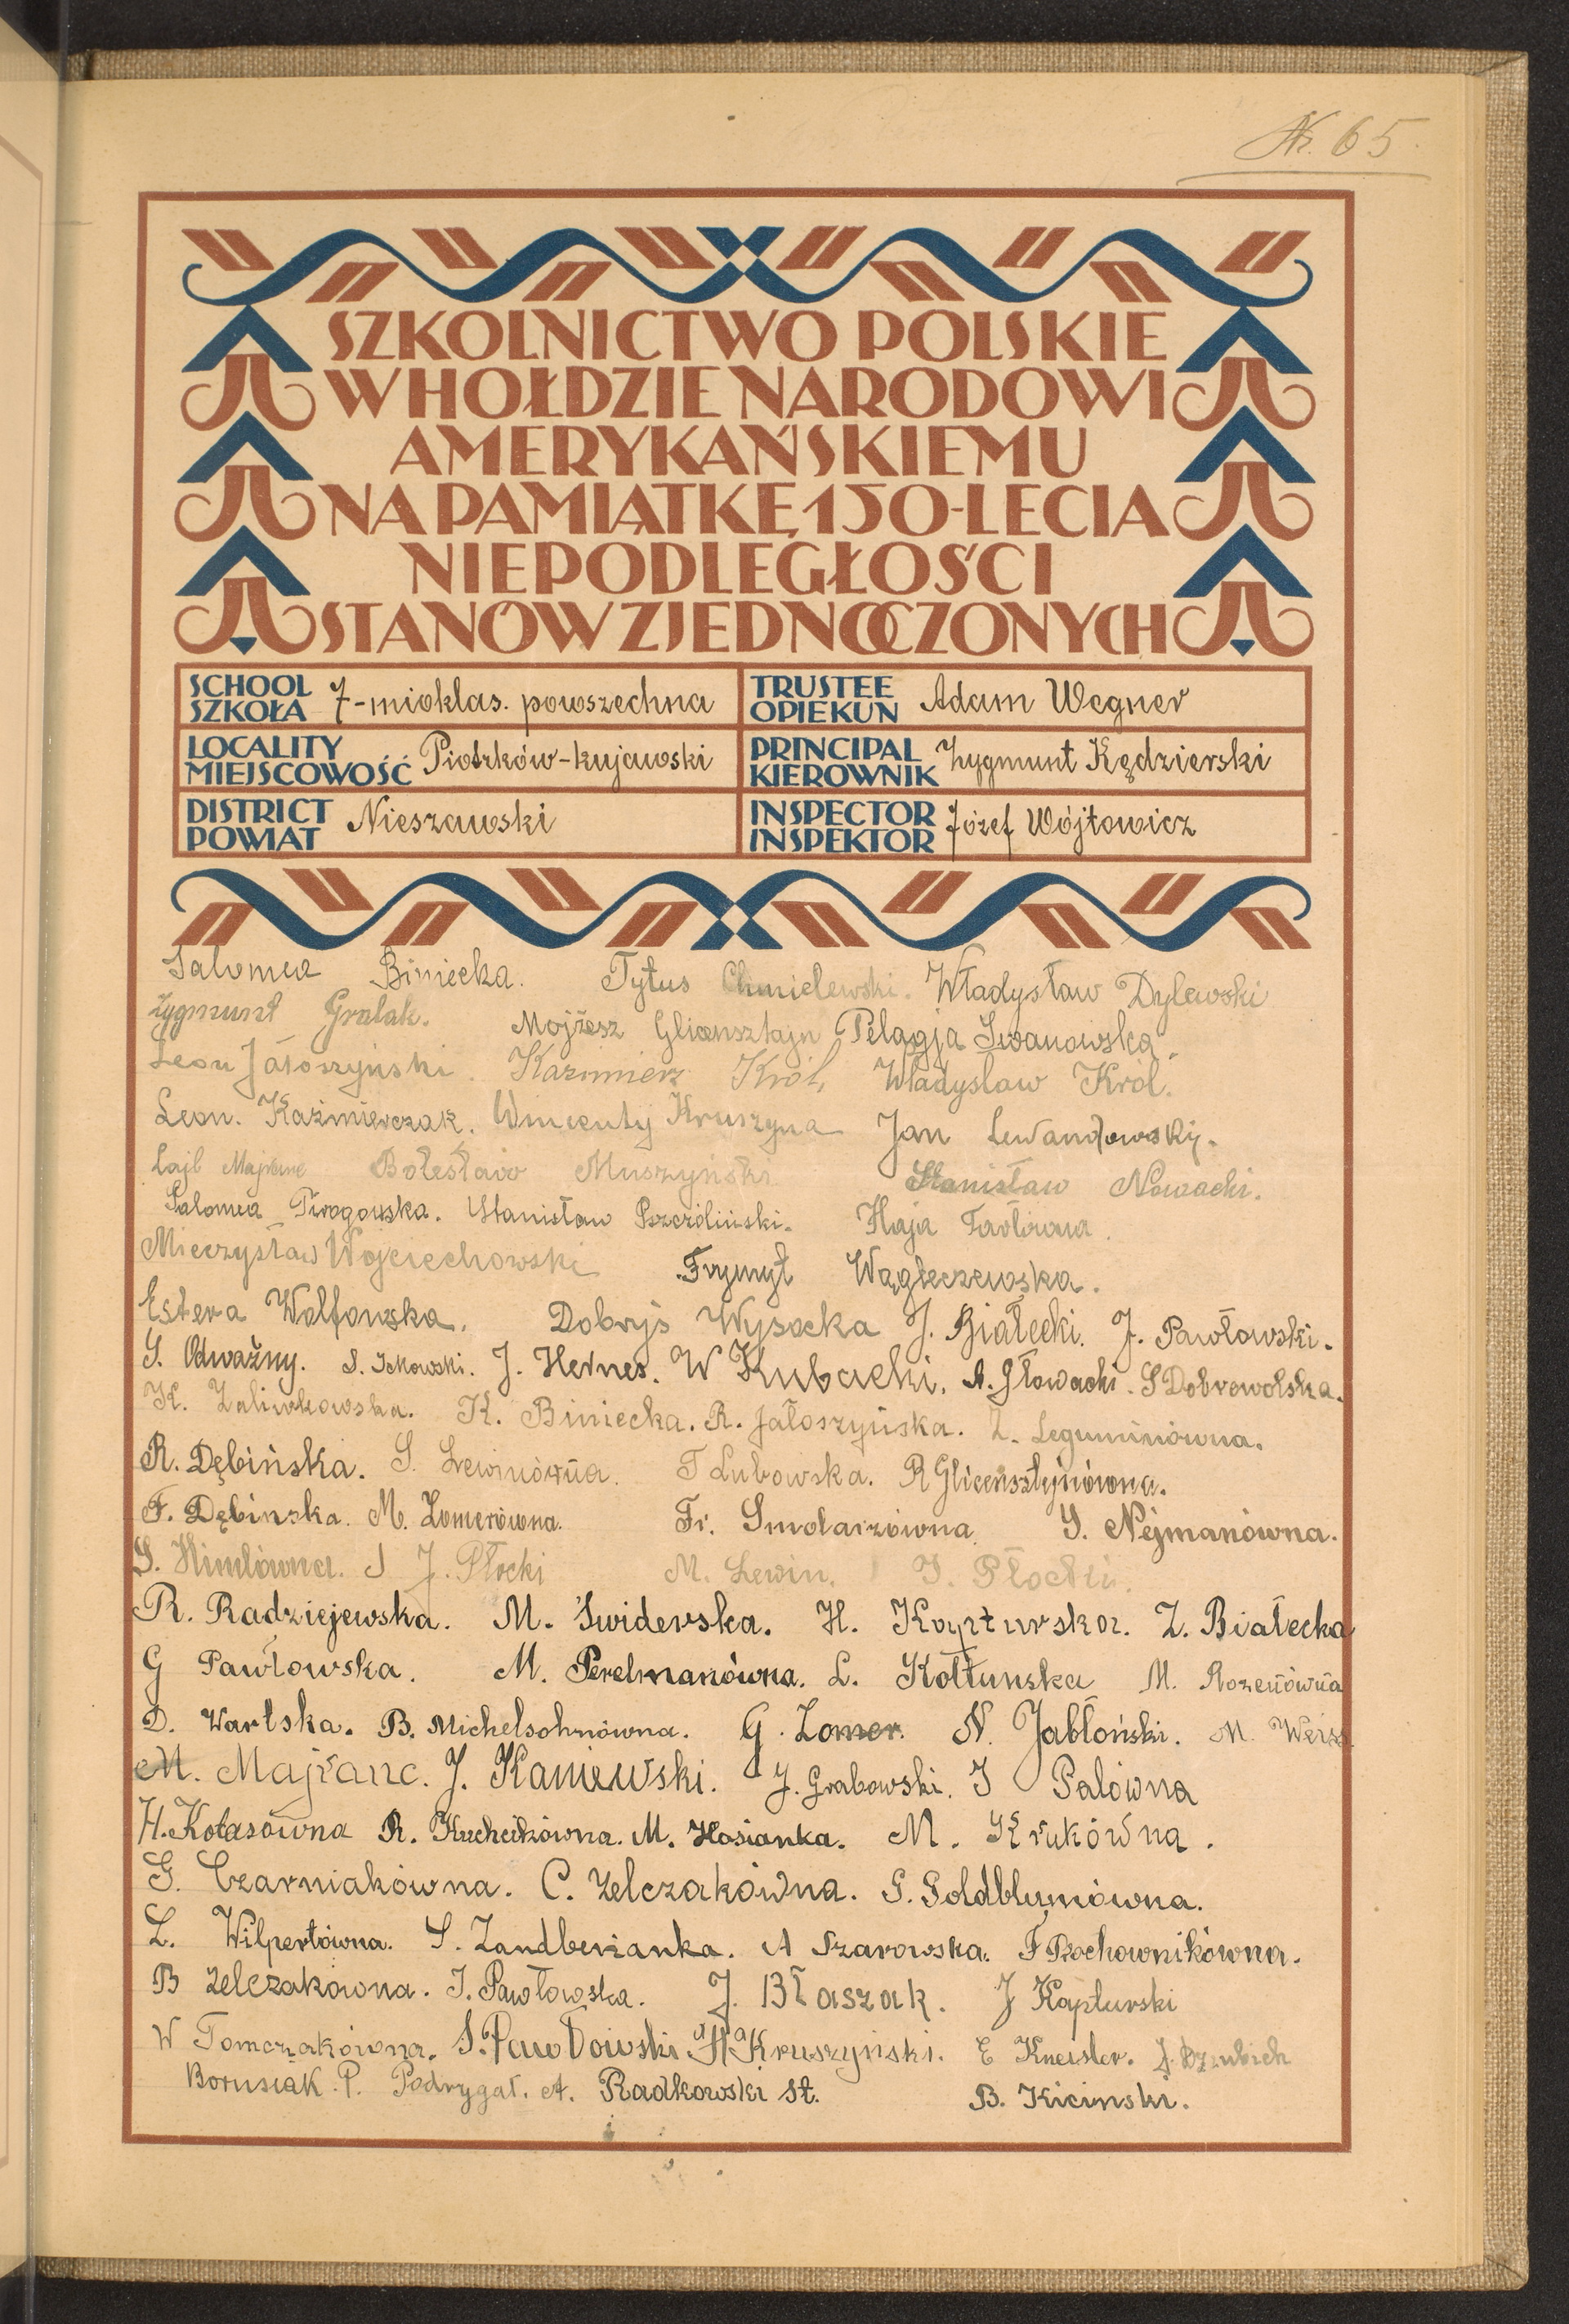 Nr. 65.
SZKOLNICTWO POLSKIE
W HOŁDZIE NARODOWI
AMERYKAŃSKIEMU
NA PAMIĄTKĘ 150-LECIA
NIEPODLEGŁOŚCI
STANÓW ZJEDNOCZONYCH
SCHOOL SZKOŁA 7-mioklas. powszechna
TRUSTEE OPIEKUN Adam Wegner
LOCALITY MIEJSCOWOŚĆ Piotrków-kujawski
PRINCIPAL KIEROWNIK Zygmunt Kędzierski
DISTRICT POWIAT Nieszawski
INSPECTOR INSPEKTOR Józef Wójtowicz
Salomea Biniecka. Tytus Chmielewski. Władysław Dylewski
Zygmunt Gralak. Mojżesz Glicensztajn Pelagja Iwanowska.
Leon Jałoszyński. Kazimierz Król, Władysław Król.
Leon. Kaźmierczak. Wincenty Kruszyna Jan Lewandowski.
Lajb Majranc Bolesław Muszyński Stanisław Nowacki.
Salomea Pirogowska. Stanisław Pszczóliński. Haja
Mieczysław Wojciechowski Frymył Wągłeczewska.
Estera Wolfowska. Dobryś Wysocka J. Białecki. J. Pawłowski.
S. Odważny. S. Ickowski. J. Hernes. W Kubacki. A. Głowacki. S Dobrowolska.
K. Zaliwkowska. K. Biniecka. R. Jałoszyńska. Z. Leguminówna.
R. Dębińska. S. Lewinówna. T Lubowska. R Glicensztejnówna.
F. Dębinska. M. Zomerówna. Fr. Smolarzówna. S. Nejmanówna.
S. Himlówna. J. Płocki M. Lewin. I. Płocki.
R. Radziejewska. M. Swiderska. H. Kapturska. Z. Białecka
G Pawłowska. M. Perelmanówna. L. Kołtunska M. Rozenówna
D. Wartska. B. Michelsohnówna. G. Zomer. N. Jabłoński. M. Weiss
M. Majranc. J. Kaniewski. J. Grabowski. I Palówna
H. Kotasówna R. Kuchcikówna. M. Hosianka. M. Krukówna.
G. Czarniakówna. C. Zelczakówna. S. Goldblumówna.
L. Wilpertówna. S. Zandberżanka. A Szarowska. F Prochownikówna.
B Zelczakówna. I. Pawłowska. J. Błaszak. J Kapturski
W Tomczakówna. S. Pawłowski H Kruszyński. E Kneisler.
Borusiak. P. Podrygał. A. Radkowski St. B. Kicinski.